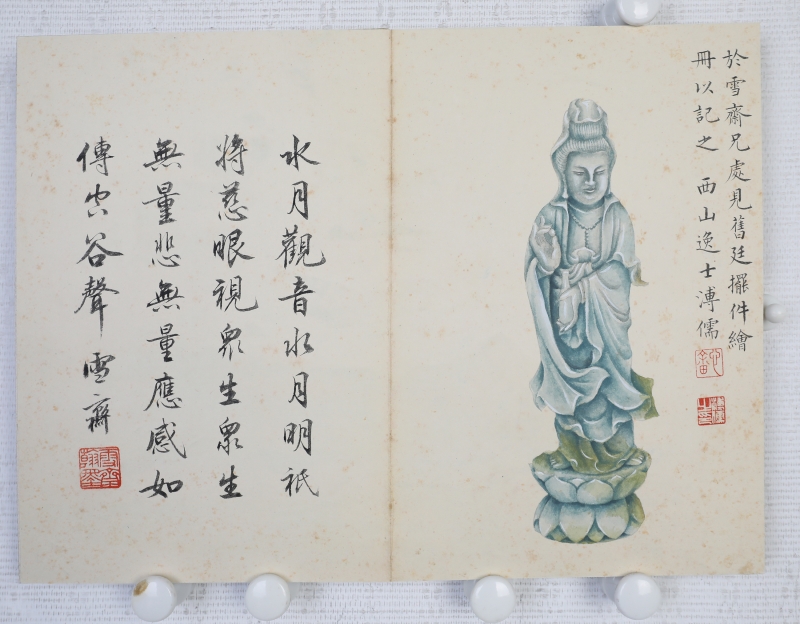 於雪齋兄處見舊廷擺件繪
冊以記之 西山逸士溥儒
心畬
溥儒之印
水月觀音水月明祇
將慈眼視眾生眾生
無量悲無量應感如
傳空谷聲 雪齋